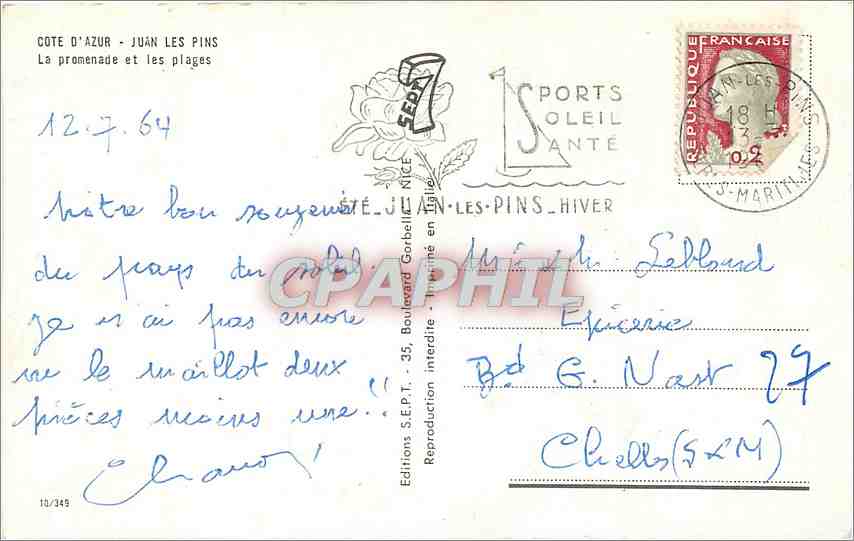 COTE D'AZUR - JUAN LES PINS
La promenade et les plages
12.7.64
Notre bon souvenir
du pays du soleil.
Je n'ai pas encore
vu le maillot deux
pièces moins une!!
10/349
SEPT
7
SPORTS
SOLEIL
SANTÉ
ÉTÉ_JUAN·LES·PINS_HIVER
Editions S.E.P.T. - 35, Boulevard Gorbella - NICE
Reproduction interdite - Imprimé en Italie
REPUBLIQUE FRANÇAISE
JUAN-LES-PINS
18 H
MARITIMES
Leblond
Epicerie
Bd G. Nast 27
Chelles (S&M)
CPAPHIL